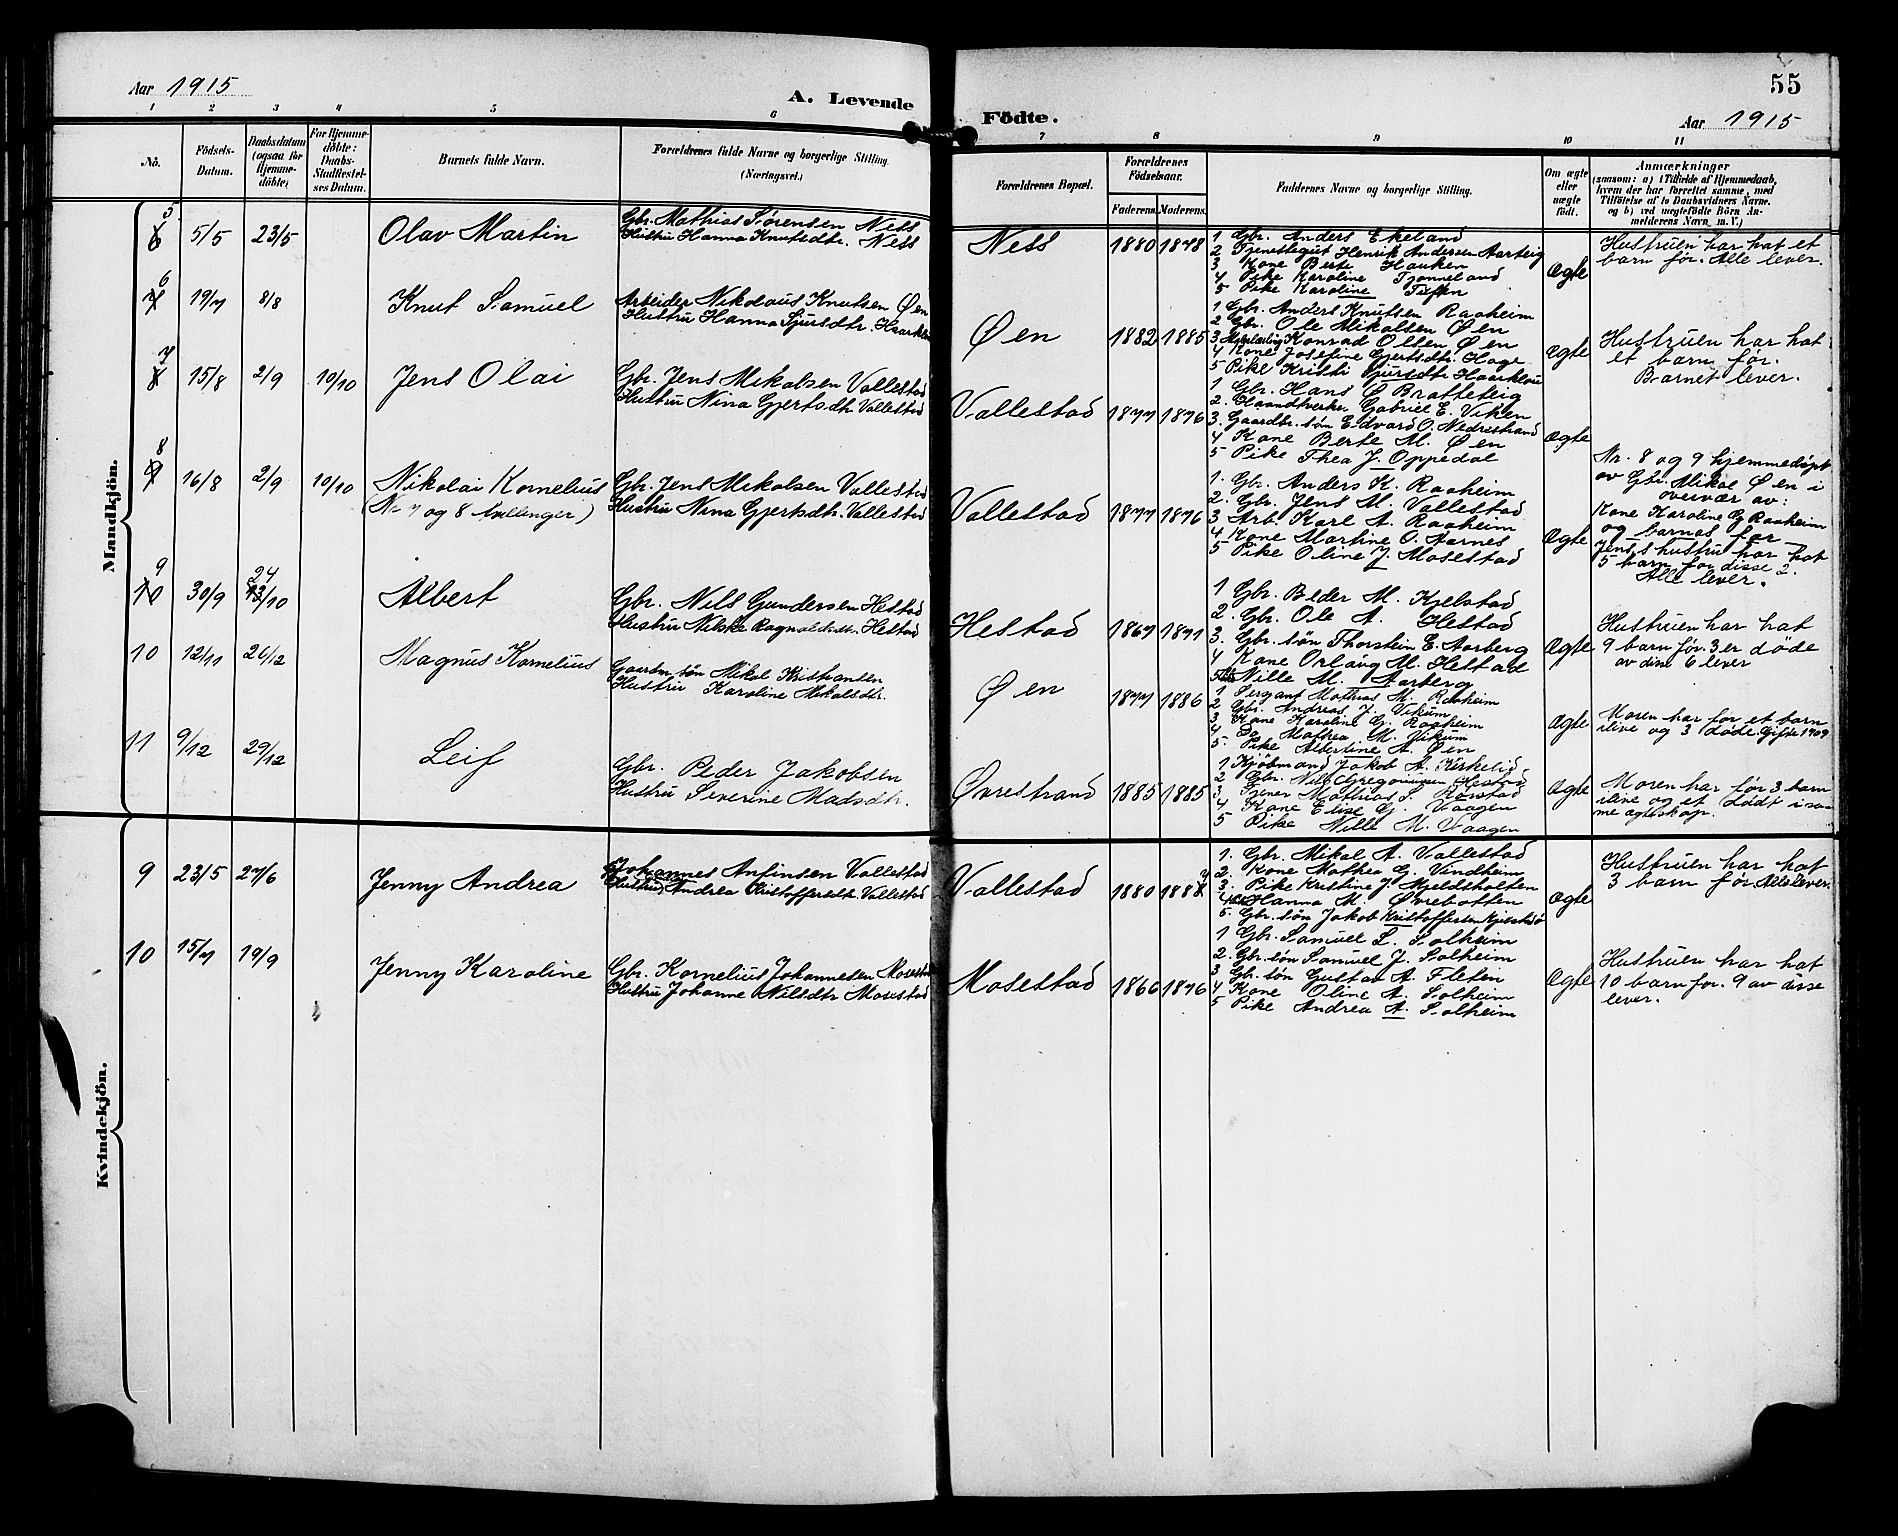 Aar 1915
A. Levende
1 2 3 4 5 6
Nô.
Födsels-Datum.
Daabsdatum (ogsaa for Hjemme-döbte)
For Hjemme-döbte: Daabs-Stadfestel-ses Datum.
Barnets fulde Navn.
Forældrenes fulde Navne og borgerlige Stilling. (Næringsvei.)
Mandkjön.
5 5/5 23/5 Olav Martin
Gbr. Mathias Sørensen Ness
Hustru Hanna Knutsdtr. Ness
6 19/7 8/8 Knut Samuel
Arbeider Nikolaus Knutsen Øen
Hustru Hanna Sjursdtr. Haarklau
7 15/8 2/9 10/10 Jens Olai
Gbr. Jens Mikalsen Vallestad
Hustru Nina Gjertsdtr. Vallestad
8 16/8 2/9 10/10 Nikolai Kornelius
(Nr 7 og 8 tvillinger)
Gbr. Jens Mikalsen Vallestad
Hustru Nina Gjertsdtr. Vallestad
9 30/9 24/10 Albert
Gbr. Nils Gundersen Hestad
Hustru Nilske Ragnaldsdtr. Hestad
10 12/11 26/12 Magnus Kornelius
Gaardm. søn Mikal Kristiansen
Hustru Karoline Mikalsdtr.
11 9/12 29/12 Leif
Gbr. Peder Jakobsen
Hustru Severine Madsdtr.
Kvindekjön.
9 23/5 27/6 Jenny Andrea
Johannes Anfinsen Vallestad
Hustru Andrea Kristoffersdt. Vallestad
10 15/7 19/9 Jenny Karoline
Gbr. Kornelius Johannesen Mosestad
Hustru Johanne Nilsdtr Mosestad
55
Födte.
Aar 1915
7 8 9 10 11
Forældrenes Bopæl.
Forældrenes Födselsaar.
Faderens. Moderens.
Faddernes Navne og borgerlige Stilling.
Om ægte eller uægte födt.
Anmærkninger
(saasom: a) i Tilfælde af Hjemmedaab,
hvem der har forrettet samme, med
Tilföielse af to Daabsvidners Navne.
og b) ved uægtefödte Börn An-
melderens Navn m. V.)
Ness 1880 1878
1 Gbr. Anders Ekeland
2 Tjenstegut Henrik Andersen Aarteig
3 Kone Berte Hauken
4 Pike Karoline Tjønneland
5 Pike Karoline
Ægte
Hustruen har hat et
barn før. Alle lever.
Øen 1882 1885
1 Gbr. Anders Knutsen Raaheim
2 Gbr. Ole Mikalsen Øen
3 Konrad Olsen Øen
4 Kone Josefine Gjertsdtr. Hage
5 Pike Kristi Sjursdtr Haarklau
Ægte
Hustruen har hat
et barn før.
Barnet lever.
Vallestad 1877 1876
1 Gbr. Hans O Bratteteig
2. Haandtverker Gabriel E. Viken
3. Gaardbr. søn Edvard O. Nedrestrand
4 Kone Berte M. Øen
5 Pike Thea J. Oppedal
Ægte
Nr. 8 og 9 hjemmedøpt
av Gbr. Mikal Øen i
overvær av:
Kone Karoline G Raaheim
og barnas far
Vallestad 1877 1876
1. Gbr. Anders K. Raaheim
2. Gbr. Jens M. Vallestad
3 Arb. Karl A. Raaheim
4 Kone Martine O. Aarnes
5 Pike Oline J. Mosestad
Ægte
Jens's hustru har hat
5 barn før disse 2.
Alle lever.
Hestad 1867 1871
1 Gbr. Peder M. Kjelstad
2. Gbr. Ole A. Hestad
3. Gbr. søn Thorstein E. Aarberg
4 Kone Orlaug M. Hestad
5 Nille M. Aarberg
Ægte
Hustruen har hat
9 barn før. 3 er døde
av disse 6 lever
Øen 1877 1886
1 Sergant Mathias M. Raaheim
2 Gbr. Andreas J. Vikum
3 Kone Karoline G. Raaheim
4 Do Mathea M. Vikum
5. Pike Albertine A. Øen
Ægte
Moren har før et barn
ilive og 3 døde. Gifte 1909
Øvrestrand 1885 1885
1 Kjøbmand Jakob A. Kirkelid
2 Gbr. Nils Gregoriussen Hestad
3 Tjener Mathias S. Rørstad
4 Kone Elise G. Vaagen
5 Pike Nille M. Vaagen
Ægte
Moren har før 3 barn
ilive og et dødt i sam-
me ægteskap.
Vallestad 1880 1887
1. Gbr. Mikal A. Vallestad
2. Kone Mathea G. Vindheim
3. Pike Kristine J Mjeldsholten
4 Hanna M. Øvrebotten
5. Gbr. søn Jakob Kristoffersen Kjelstad
Ægte
Hustruen har hat
3 barn før. Alle lever.
Mosestad 1866 1876
1 Gbr. Samuel L. Solheim
2. Gbr søn Samuel J. Solheim
3 Gb. søn Gustav A. Fletin
4 Kone Oline A. Solheim
5 Pike Andrea A. Solheim
Ægte
Hustruen har hat
10 barn før. 9 av disse
lever.